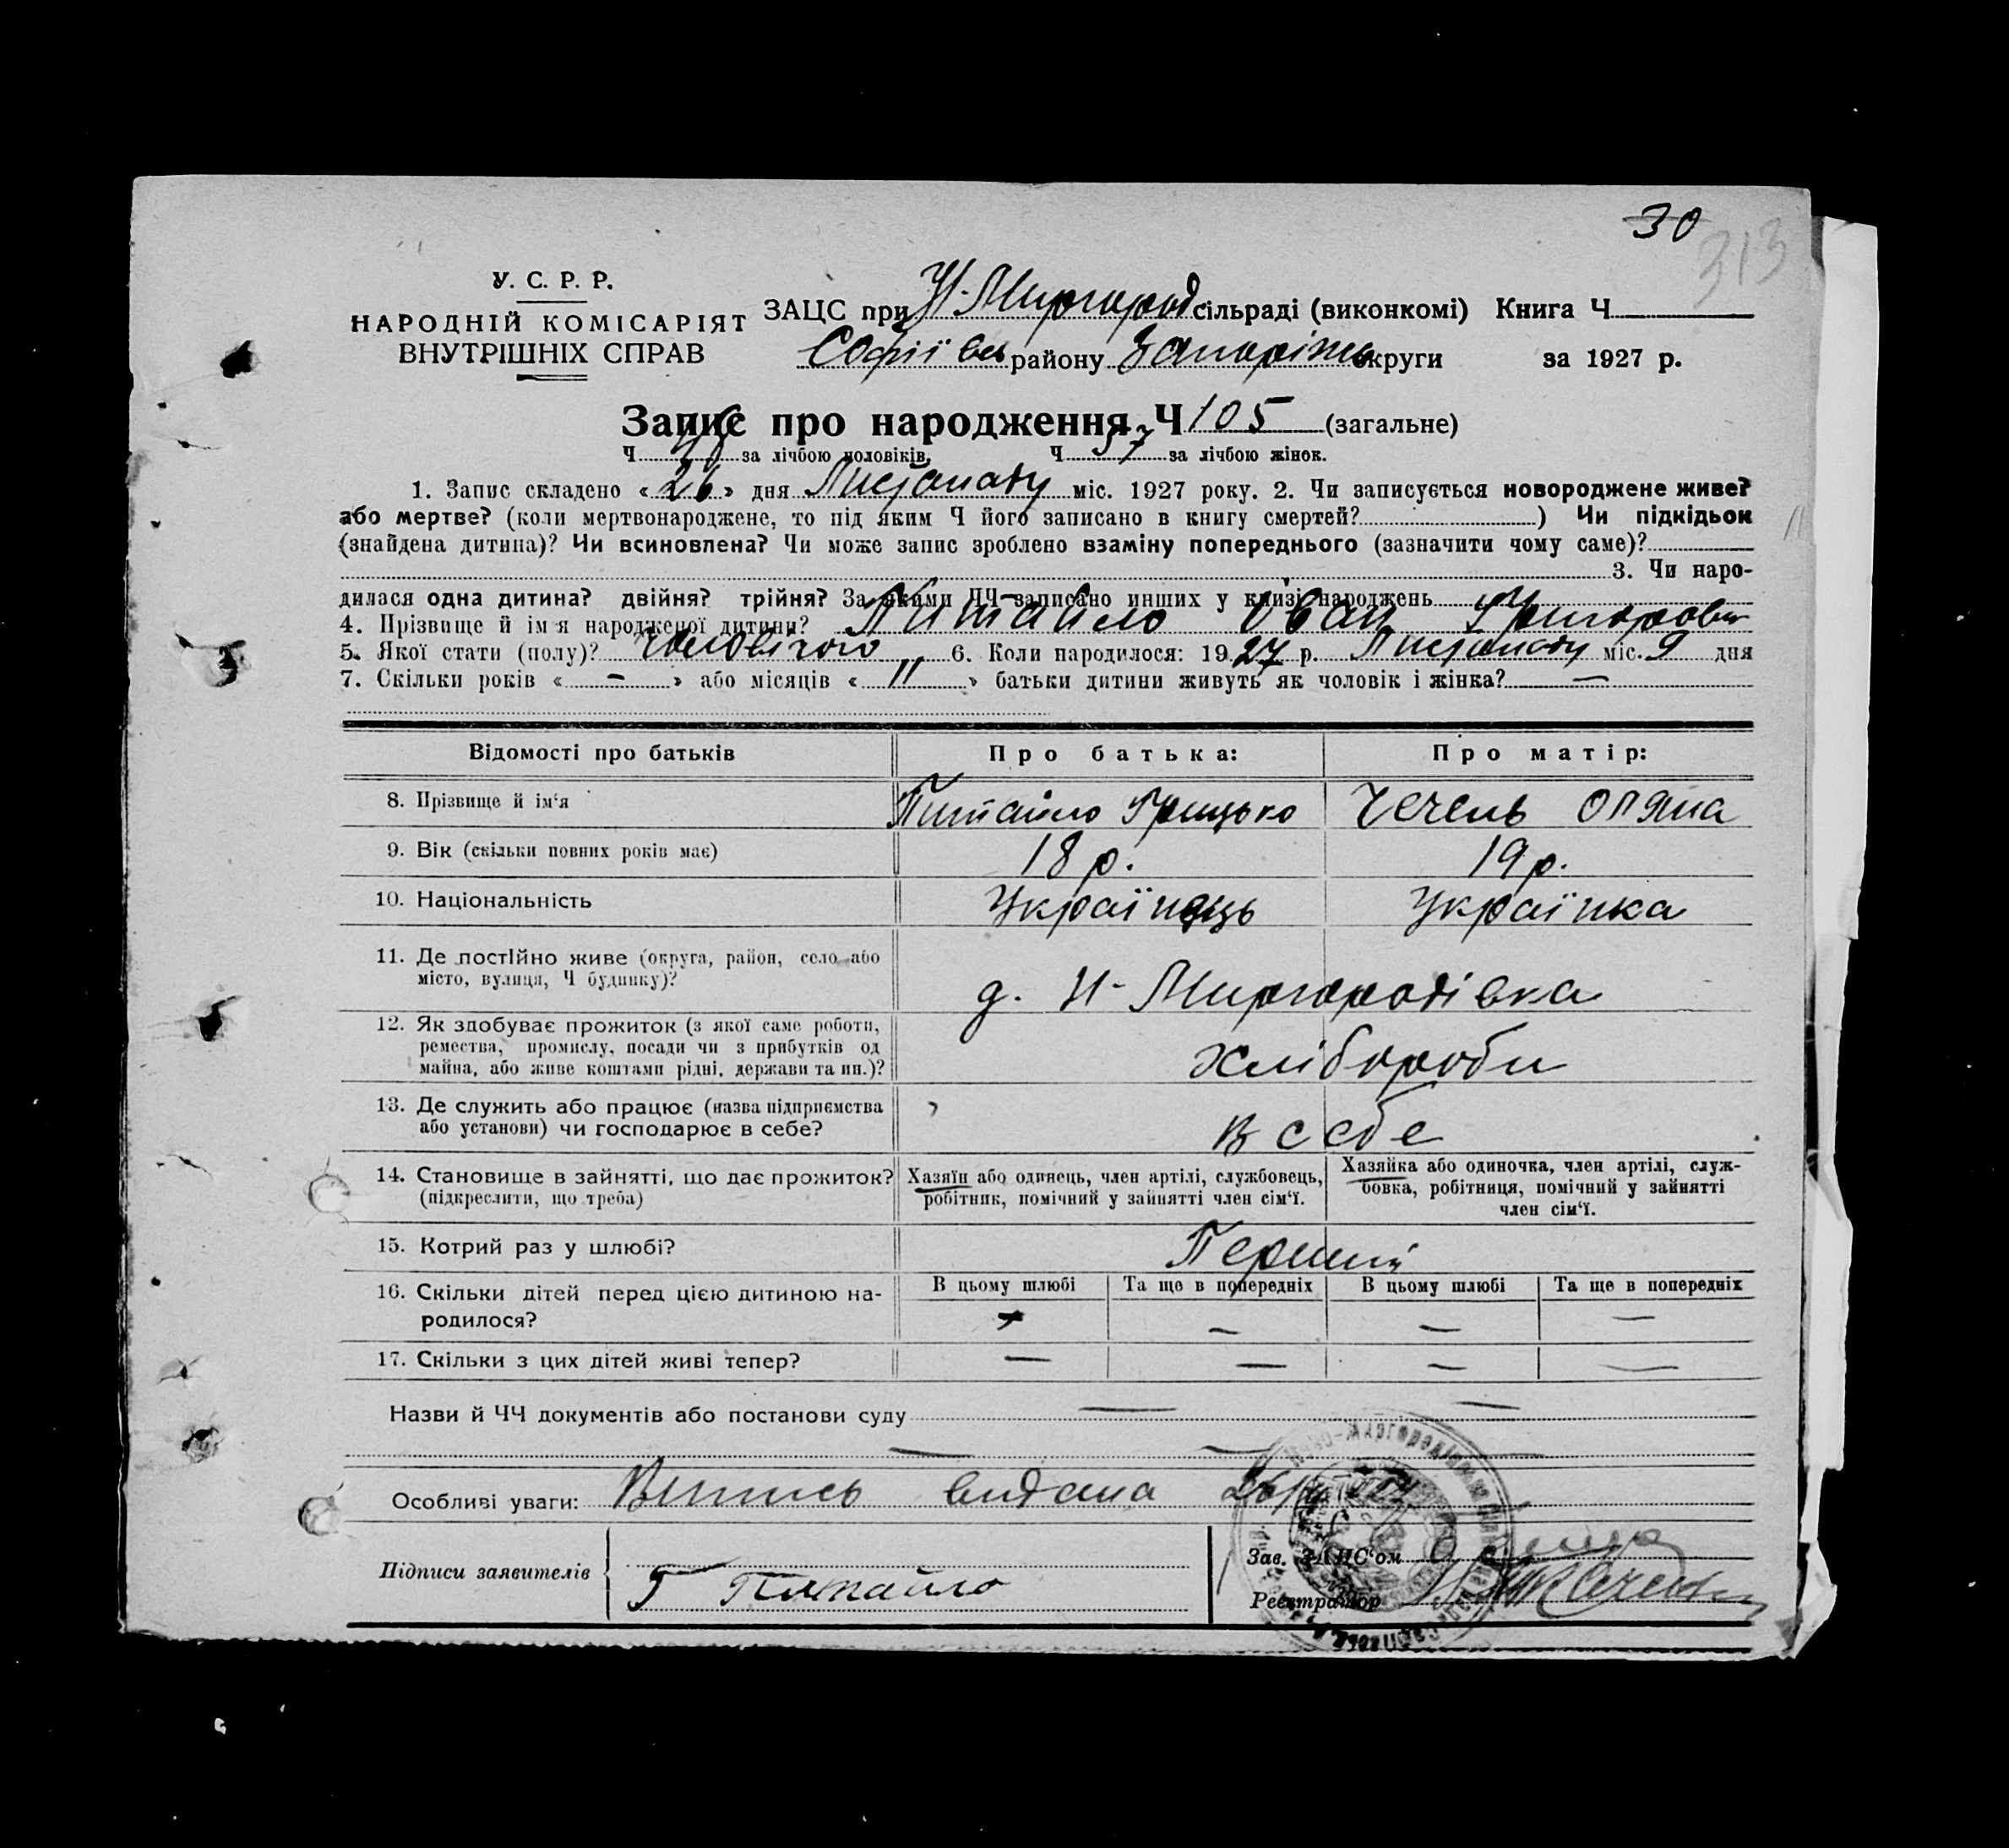 30
313
У. С. Р. Р.
НАРОДНІЙ КОМІСАРІЯТ
ВНУТРІШНІХ СПРАВ
ЗАЦС при Н-Миргород сільраді (виконкомі) Книга Ч
Софіївсь району Запоріжь округи за 1927 р.
Запис про народження Ч 105 (загальне)
Ч 48 за лічбою чоловіків, Ч 57 за лічбою жінок.
1. Запис складено « 26 » дня Листопаду міс. 1927 року. 2. Чи записується новороджене живе?
або мертве? (коли мертвонароджене, то під яким Ч його записано в книгу смертей? ) Чи підкідьок
(знайдена дитина)? Чи всиновлена? Чи може запис зроблено взаміну попереднього (зазначити чому саме)?
3. Чи наро-
дилася одна дитина? двійня? трійня? За якими ЧЧ записано инших у книзі народжень
4. Прізвище й ім'я народженої дитини? Питайло Іван Григорович
5. Якої стати (полу)? чоловічого 6. Коли народилося: 1927 р. Листопаду міс. 9 дня
7. Скільки років « — » або місяців « 11 » батьки дитини живуть як чоловік і жінка? —
Відомості про батьків Про батька: Про матір:
8. Прізвище й ім'я Питайло Грицько Чечель Оляна
9. Вік (скільки повних років має) 18 р. 19 р.
10. Національність Українець Українка
11. Де постійно живе (округа, район, село або
місто, вулиця, Ч будинку)? д. Н-Миргородівка
12. Як здобуває прожиток (з якої саме роботи,
ремества, промислу, посади чи з прибутків од
майна, або живе коштами рідні, держави та ин.)? Хлібороби
13. Де служить або працює (назва підприємства
або установи) чи господарює в себе? в себе
14. Становище в зайнятті, що дає прожиток?
(підкреслити, що треба)
Хазяїн або одинець, член артілі, службовець,
робітник, помічний у зайнятті член сім'ї.
Хазяйка або одиночка, член артілі, служ-
бовка, робітниця, помічний у зайнятті
член сім'ї.
15. Котрий раз у шлюбі? Перший
16. Скільки дітей перед цією дитиною на-
родилося?
В цьому шлюбі Та ще в попередніх В цьому шлюбі Та ще в попередніх
— — —
17. Скільки з цих дітей живі тепер? — — — —
Назви й ЧЧ документів або постанови суду — —
Особливі уваги: Випись видана
Підписи заявителів Г Питайло
Зав. ЗАЦС'ом
Реєстратор